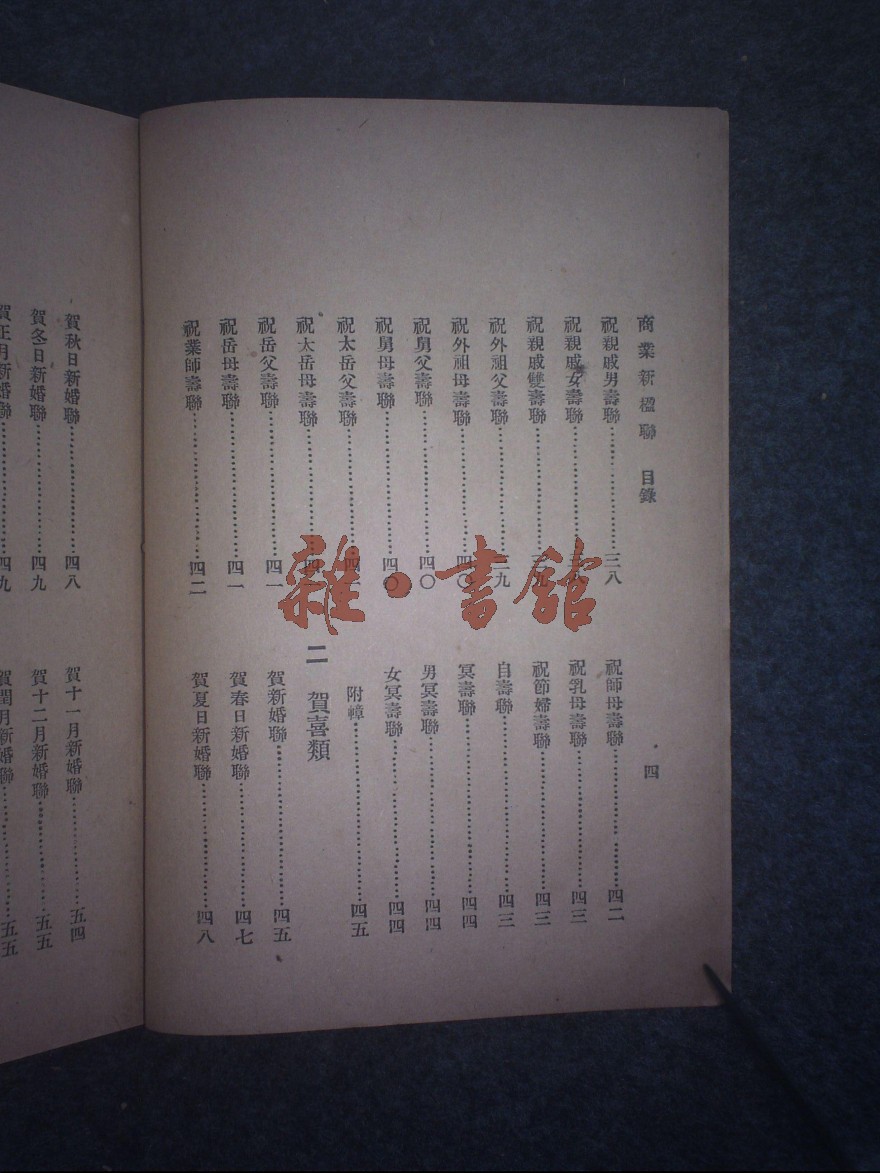 商業新楹聯　目錄
四
祝親戚男壽聯……三八
祝親戚女壽聯……三八
祝親戚雙壽聯……三九
祝外祖父壽聯……三九
祝外祖母壽聯……四〇
祝舅父壽聯……四〇
祝舅母壽聯……四〇
祝太岳父壽聯……四一
祝太岳母壽聯……四一
祝岳父壽聯……四一
祝岳母壽聯……四一
祝業師壽聯……四二
祝師母壽聯……四二
祝乳母壽聯……四三
祝節婦壽聯……四三
自壽聯……四三
冥壽聯……四四
男冥壽聯……四四
女冥壽聯……四四
附幛……四五
二　賀喜類
賀新婚聯……四五
賀春日新婚聯……四七
賀夏日新婚聯……四八
賀秋日新婚聯……四八
賀冬日新婚聯……四九
賀正月新婚聯……四九
賀十一月新婚聯……五四
賀十二月新婚聯……五五
賀閏月新婚聯……五五
雜·書館